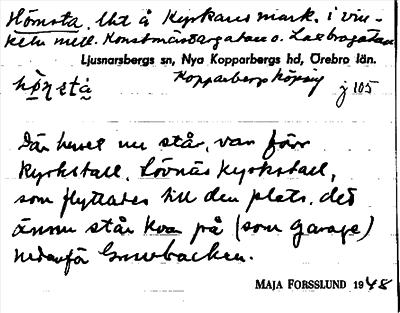 Hömsta, lht å Kyrkans mark. i vin-
keln mell. Konstmästaregatan o. Laxbrogatan
Ljusnarsbergs sn, Nya Kopparbergs hd, Örebro län.
Kopparbergs köping
j 105
Där huset nu står, van förr
kyrkstall, Lövnäs kyrkstall,
som flyttades till den plats, det
ännu står på (som garage)
nedanför backen.
MAJA FORSSLUND 1948